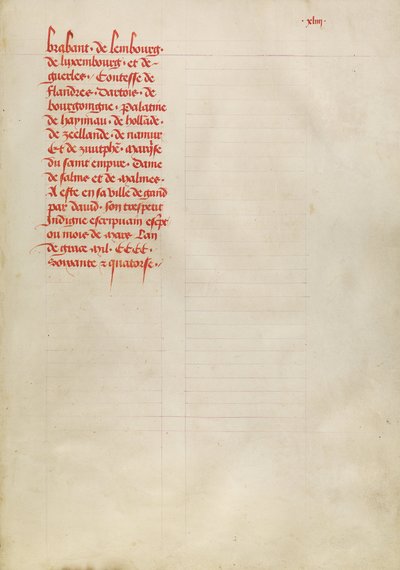 · xliiij ·
brabant · de lembourg ·
de luxembourg · et de-
guerles · Contesse de
flandres · dartois · de
bourgoingne · palatine
de haynnau · de hollāde ·
de zeellande · de namur
Et de zuutphē · marq̄se
du saint empire · Dame
de salins et de malines ·
A este en sa ville de gand
par dauid · son trespetit
Indigne escripuain escpt
ou mois de mars Lan
de grace mil · CCCC ·
Soixante z quatorse ·